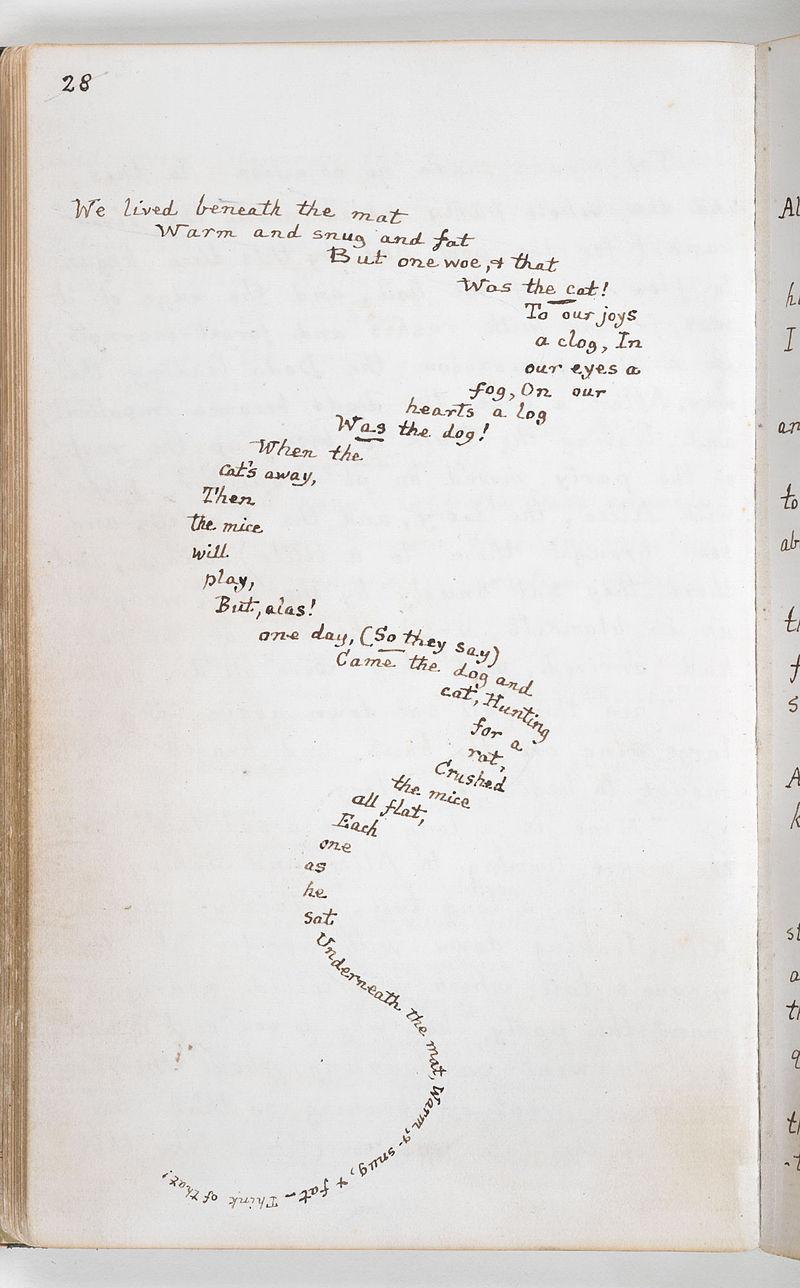 28
We lived beneath the mat
Warm and snug and fat
But one woe, & that
Was the cat!
To our joys
a clog, In
our eyes a
fog, On our
hearts a log
Was the dog!
When the
cat's away,
Then
the mice
will
play,
But, alas!
one day, (So they say)
Came the dog and
cat, Hunting
for a
rat,
Crushed
the mice
all flat,
Each
one
as
he
sat
Underneath the mat, Warm, & snug, & fat – Think of that!
Al
h
I
an
to
ab
t
f
s
A
k
st
a
t
q
t
-t